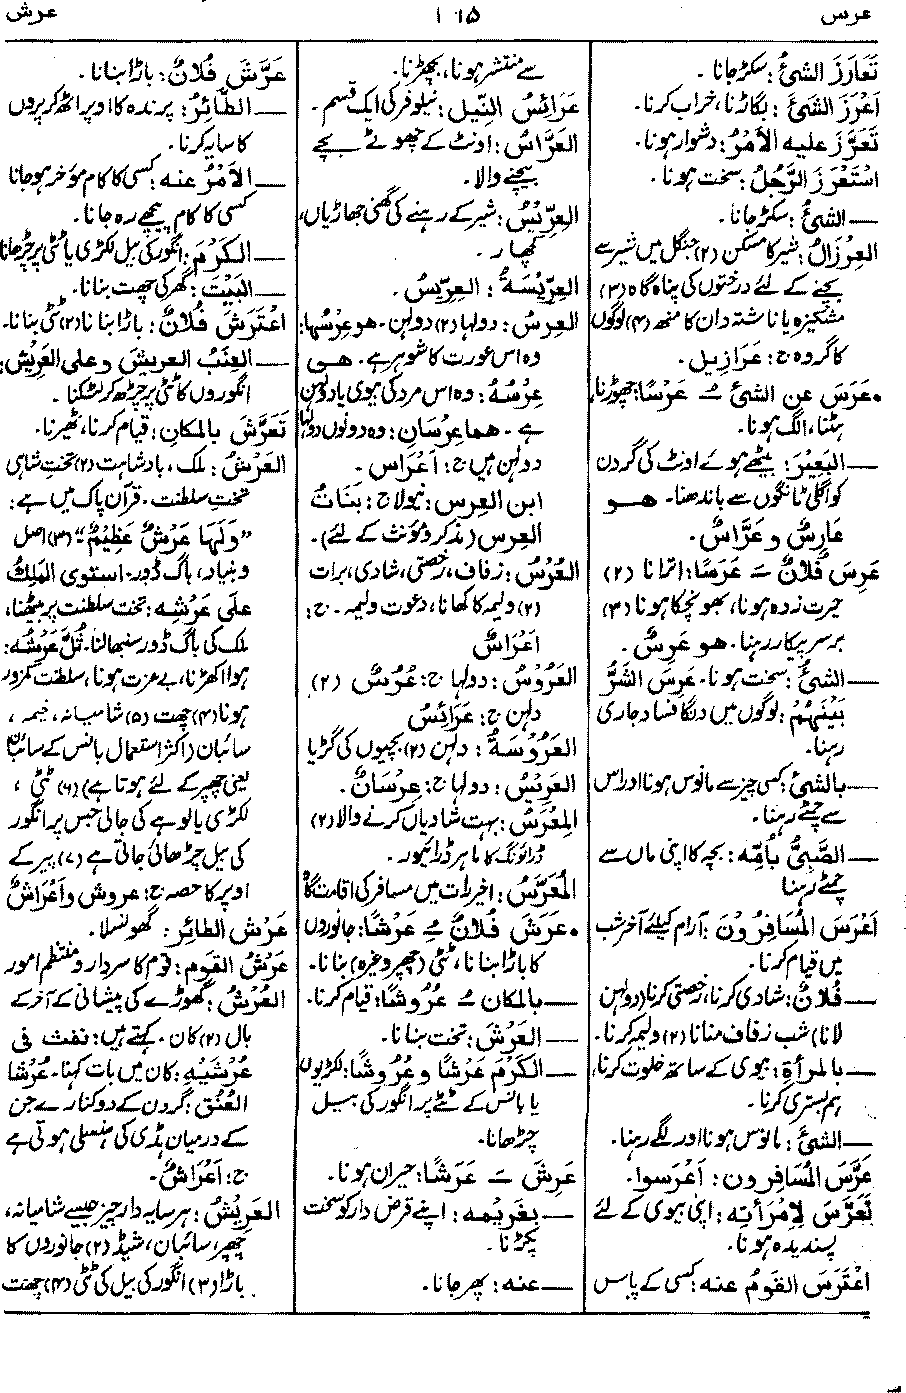 عرس
۱۰۶۵
عرش
تَعَارَزَ الشیُٔ : سکڑ جانا ۔
اَعْرَزَ الشَیَٔ : بگاڑنا، خراب کرنا۔
تَعَرَّزَ علیه الاَمْرُ : دشوار ہونا۔
اسْتَعْرَزَ الرَّجُلُ : سخت ہونا ۔
— الشیُٔ : سکڑ جانا۔
العِرْزَالُ : شیر کا مسکن (۲) جنگل میں شیر سے
بچنے کے لئے درختوں کی پناہ گاہ (۳)
مشکیزہ یا ناشتہ دان کا منھ (۴) لوگوں
کا گروہ ج: عَرَازِیل ۔
• عَرَسَ عن الشیٔ ـُ عَرْسًا : چھوڑنا،
ہٹنا، الگ ہونا۔
— البَعِیْرَ : بیٹھے ہوئے اونٹ کی گردن
کو اگلی ٹانگوں سے باندھنا۔ هــو
عَارِسٌ و عَرَّاسٌ ۔
عَرِسَ فُلَانٌ ـَ عَرَسًا : اترانا (۲)
حیرت زدہ ہونا، بھونچکا ہونا (۳)
برسرِ پیکار رہنا۔ هو عَرِسٌ ۔
— الشیُٔ : سخت ہونا۔ عَرِسَ الشَرُّ
بَیْنَهُمْ : لوگوں میں دنگا فساد جاری
رہنا۔
— بالشیٔ : کسی چیز سے مانوس ہونا اور اس
سے چمٹے رہنا۔
— الصَّبِیُّ بِأُمِّه : بچہ کا اپنی ماں سے
چمٹے رہنا
اَعْرَسَ المُسَافِرُوْنَ : آرام کیلئے آخر شب
میں قیام کرنا۔
— فُلَانٌ : شادی کرنا، رخصتی کرنا (دولہن
لانا) شب زفاف منانا (۲) ولیمہ کرنا۔
— بالمرأة : بیوی کے ساتھ خلوت کرنا،
ہم بستری کرنا۔
— الشیَٔ : مانوس ہونا اور لگے رہنا۔
عَرَّسَ المُسَافِرون : اَعْرَسوا۔
تَعَرَّسَ لِامْرَأتِه : اپنی بیوی کے لئے
پسندیدہ ہونا۔
اعْتَرَسَ القومُ عنه : کسی کے پاس
سے منتشر ہونا، بچھڑنا۔
عَرَائِسُ النِّیل : نیلوفر کی ایک قسم ۔
العَرَّاسُ : اونٹ کے چھوٹے بچے
بیچنے والا۔
العِرِّیْسُ : شیر کے رہنے کی گھنی جھاڑیاں،
کچھار ۔
العِرِّیْسَةُ : العِرِّیس۔
العِرسُ : دولہا (۲) دولہن ۔ هو عِرْسُها:
وہ اس عورت کا شوہر ہے ۔ هــی
عِرْسُهُ : وہ اس مرد کی بیوی یا دولہن
ہے ۔ هما عِرْسَانِ : وہ دونوں دولہا
دولہن ہیں ج: اَعْرَاس ۔
ابن العِرس : نیولا ج: بَنَاتُ
العِرس (مذکر و مؤنث کے لئے)۔
العُرْسُ : زفاف، رخصتی، شادی، برات
(۲) ولیمہ کا کھانا، دعوت ولیمہ ۔ ج:
اَعْرَاسٌ
العَرُوْسُ : دولہا ج: عُرُسٌ (۲)
دلہن ج: عَرَائِسُ
العَرُوْسَةُ : دلہن (۲) بچیوں کی گڑیا
العَرِیْسُ : دولہا ج: عِرْسَانٌ۔
المِعْرَسُ : بہت شادیاں کرنے والا (۲)
ڈرائونگ کا ماہر ڈرائیور۔
المُعَرَّسُ : اخیر رات میں مسافر کی اقامت گاہ
• عَرَشَ فُلانٌ ـِ عَرْشًا : جانوروں
کا باڑا بنانا، ٹٹی (چھپر وغیرہ) بنانا۔
— بالمكان ـُ عُرُوشًا : قیام کرنا۔
— العَرْشَ : تخت بنانا۔
— الكَرْمَ عَرْشًا و عُرُوشًا : لکڑیوں
یا بانس کے ٹٹے پر انگور کی بیل
چڑھانا۔
عَرِشَ ـَ عَرَشًا : حیران ہونا۔
— بغَرِیمه : اپنے قرض دار کو سخت
پکڑنا۔
— عنه : پھر جانا۔
عَرَّشَ فُلانٌ : باڑا بنانا۔
— الطَّائِرُ : پرندہ کا اوپر اٹھ کر پروں
کا سایہ کرنا۔
— الاَمْرُ عنه : کسی کا کام مؤخر ہو جانا
کسی کا کام پیچھے رہ جانا۔
— الكَرْمَ : انگور کی بیل لکڑی یا ٹٹی پر چڑھانا
— البَیْتَ : گھر کی چھت بنانا۔
اعْتَرَشَ فُلانٌ : باڑا بنانا (۲) ٹٹی بنانا۔
— العِنَبُ العریشَ وعلی العَرِیْش :
انگوروں کا ٹٹی پر چڑھ کر لٹکنا ۔
تَعَرَّشَ بالمکانِ : قیام کرنا، ٹھیرنا۔
العَرْشُ : ملک، بادشاہت (۲) تخت شاہی
تختِ سلطنت ۔ قرآن پاک میں ہے :
”وَلَهَا عَرْشٌ عَظِیْمٌ“ (۳) اصل
و بنیاد، باگ ڈور۔ استوی المَلِكُ
علی عَرْشِه : تخت سلطنت پر بیٹھنا،
ملک کی باگ ڈور سنبھالنا۔ ثُلَّ عَرْشُه :
ہوا اکھڑنا، بے عزت ہونا، سلطنت کمزور
ہونا (۴) چھت (۵) شامیانہ، خیمہ ،
سائبان (اکثر استعمال بانس کے سائبان
یعنی چھپر کے لئے ہوتا ہے) (۶) ٹٹی ،
لکڑی یا لوہے کی جالی جس پر انگور
کی بیل چڑھائی جاتی ہے (۷) پیر کے
اوپر کا حصہ ج: عروش و اَعْرَاشٌ
عَرْش الطائر : گھونسلا۔
عَرْشُ القوم : قوم کا سردار و منتظم امور
العُرْشُ : گھوڑے کی پیشانی کے آخر کے
بال (۲) کان ۔ کہتے ہیں : نفث فی
عُرْشَیْهِ : کان میں بات کہنا۔ عُرْشَا
العُنُق : گردن کے دو کنارے جن
کے درمیان ہڈی کی ہنسلی ہوتی ہے
ج: اَعْرَاشٌ۔
العَرِیْشُ : ہر سایہ دار چیز جیسے شامیانہ،
چھپر، سائبان، شیڈ (۲) جانوروں کا
باڑا (۳) انگور کی بیل کی ٹٹی (۴) چھت